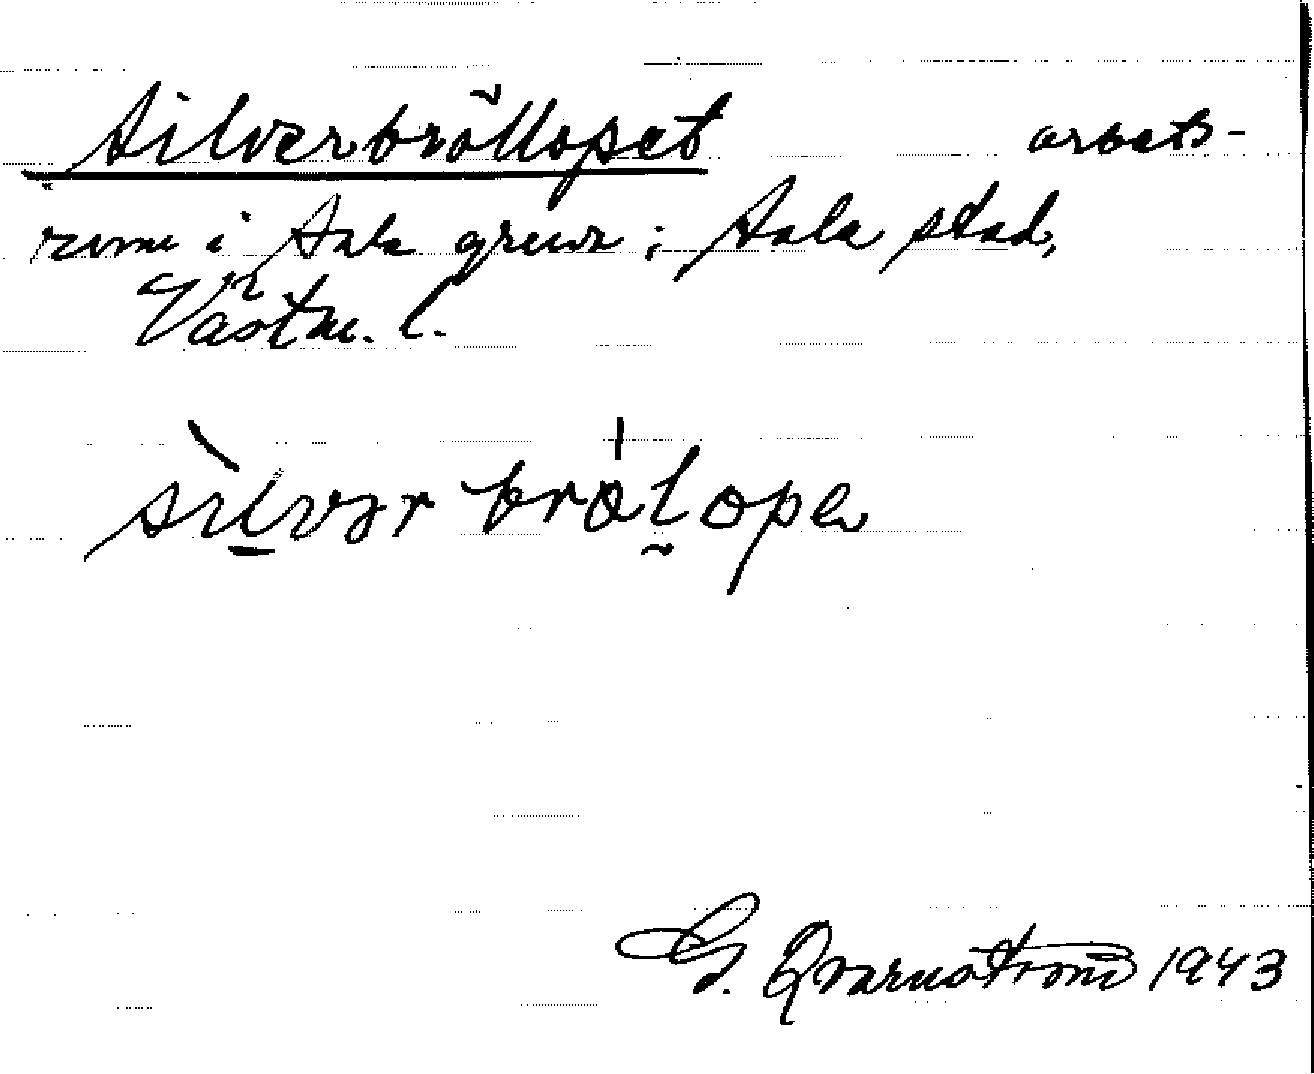 Silverbröllopet arbets-
rum i Sala gruva; Sala stad,
Västm. l.
sìlvər brö́lope
G. Qvarnström 1943